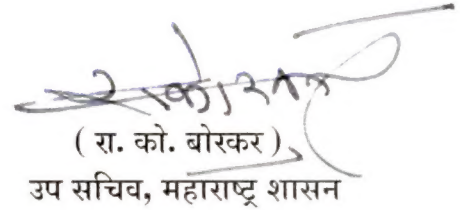 ( रा. को. बोरकर )
उप सचिव, महाराष्ट्र शासन